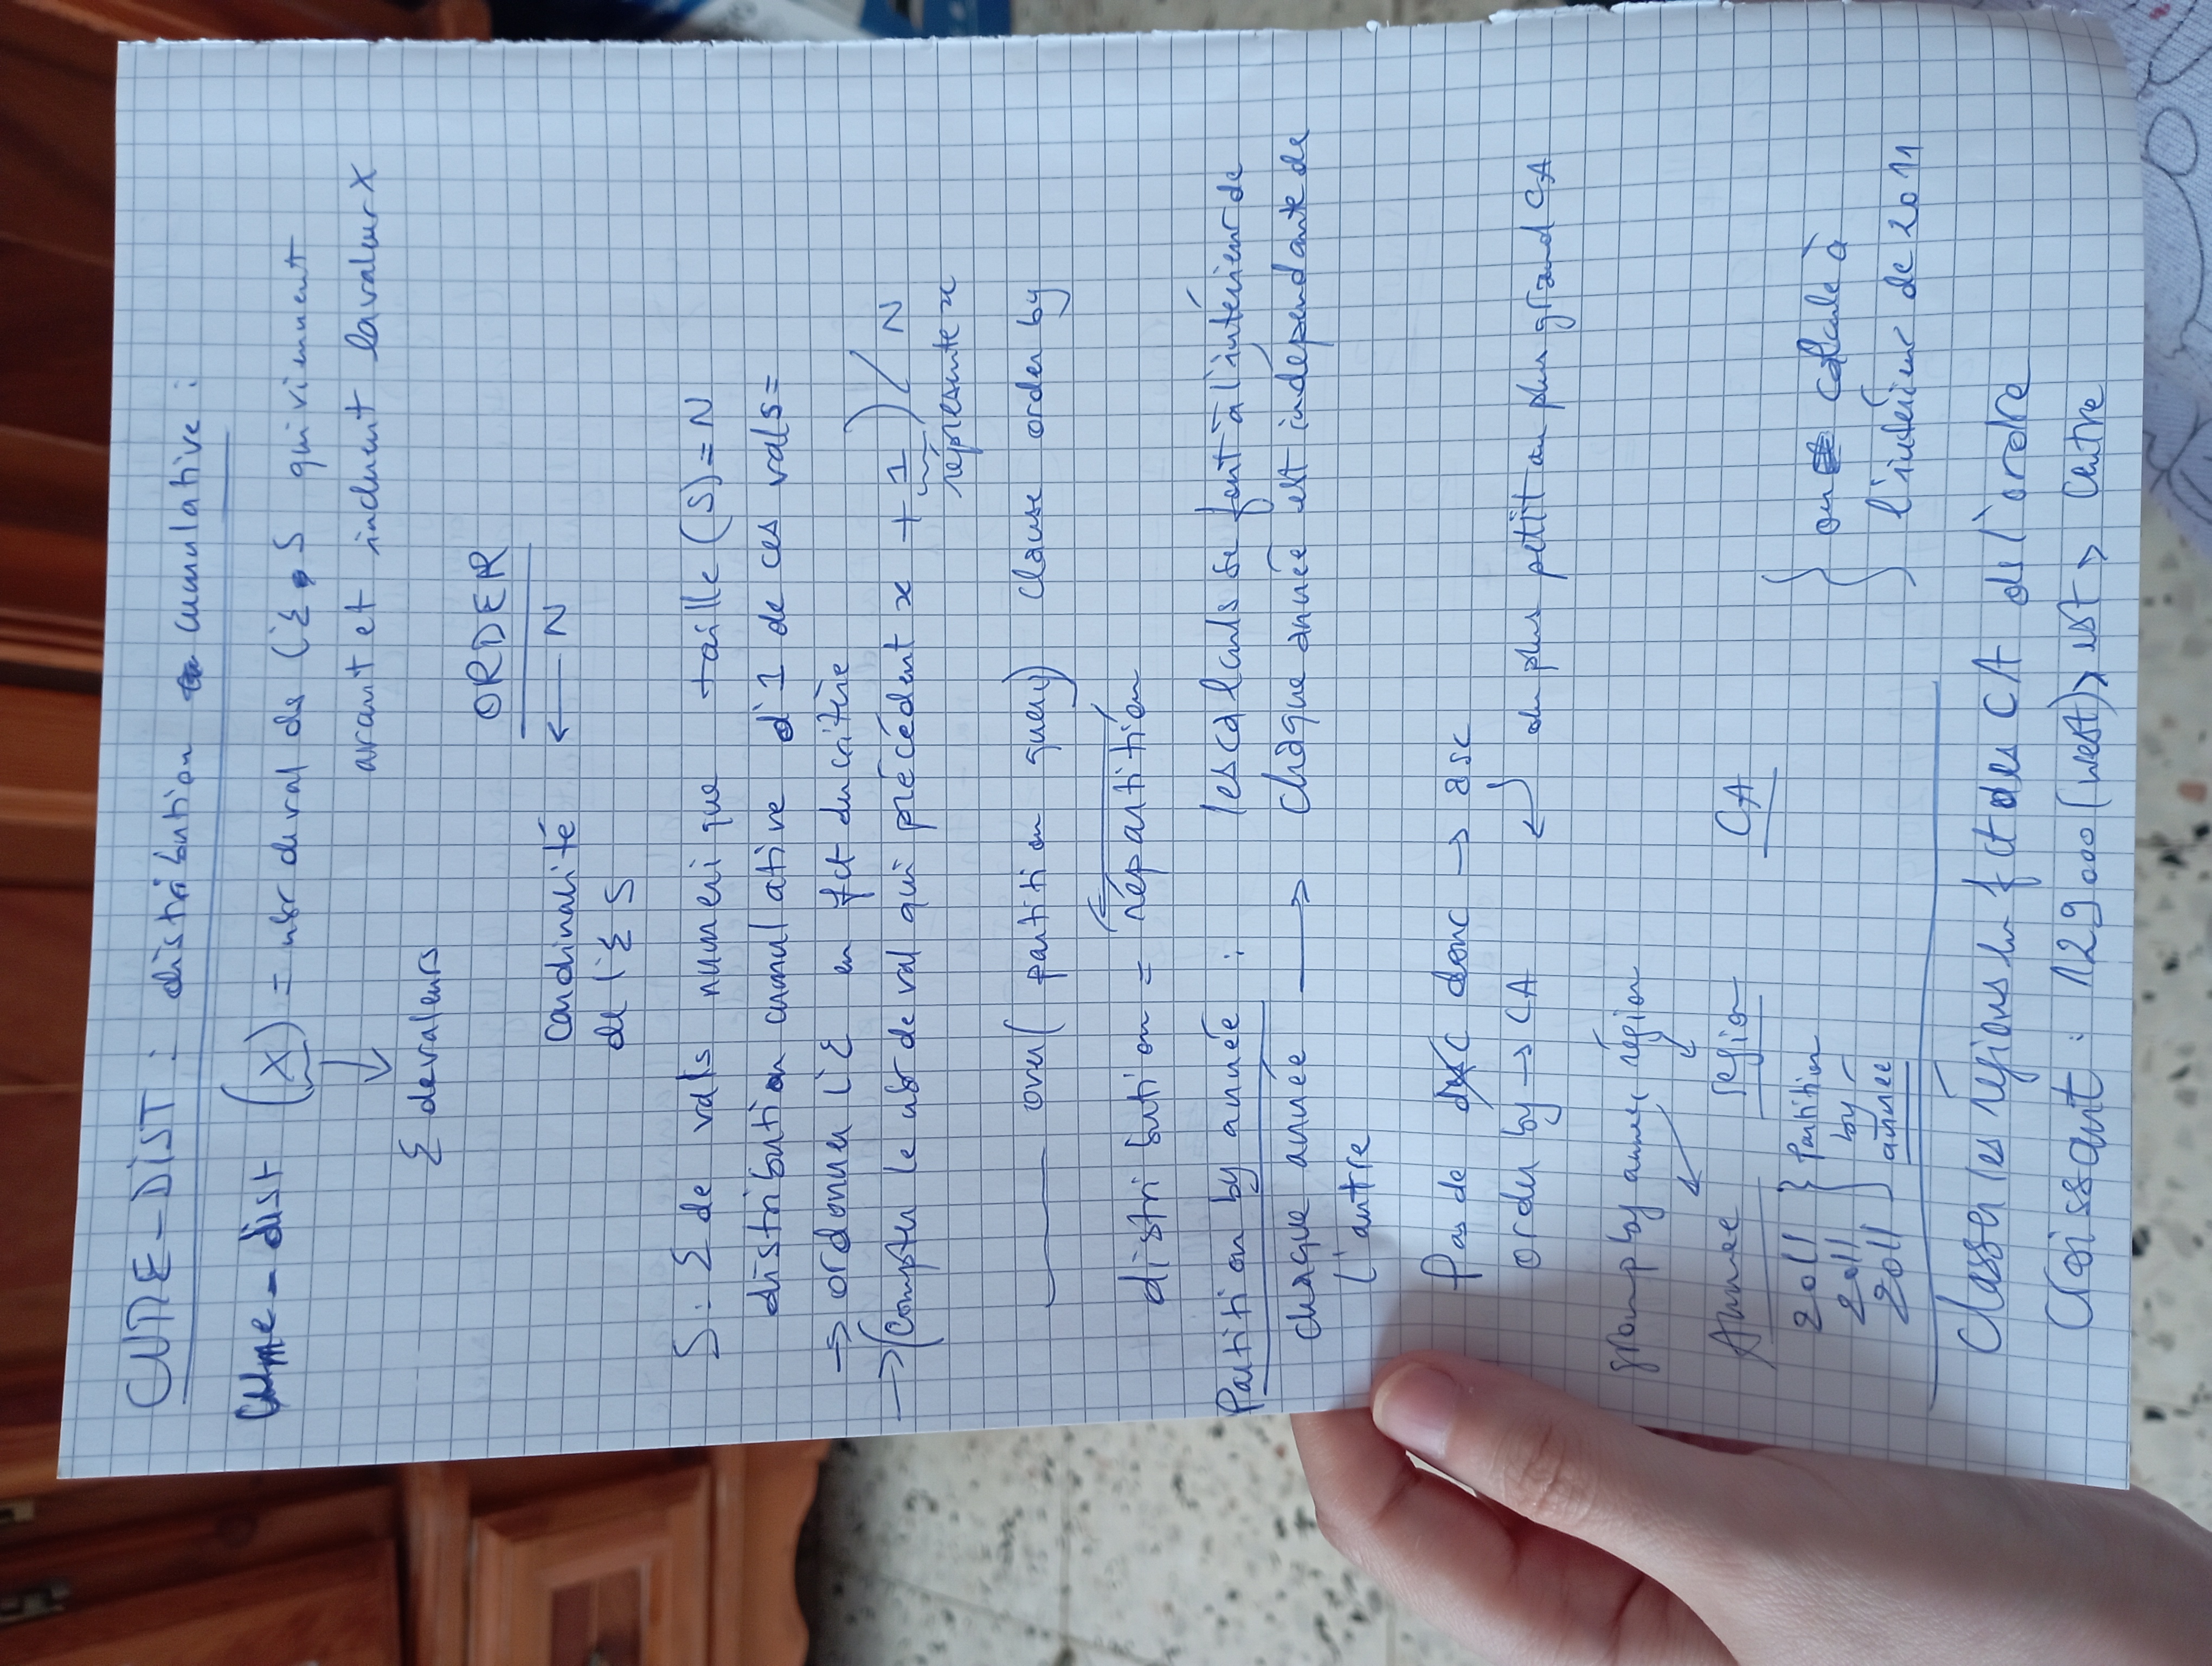 CUME-DIST : distribution cumulative :
Cume-dist (X) = nbr de val ds l'Σ S qui viennent
avant et incluent la valeur X
↓
Σ de valeurs
ORDER
cardinalité ← N
de l'Σ S
S : Σ de vals numerique taille (S) = N
distribution cumulative d'1 de ces vals =
→ ordonner l'Σ en fct du critère
→ (Compter le nbr de val qui précédent x + 1) / N
réprésente x
____ over( partition query) clause order by
distribution = répartition
Partition by année : les calculs se font à l'intérieur de
chaque année → chaque année est indépendante de
l'autre
Pas de desc donc → asc
order by → CA ↵ du plus petit au plus grand CA
group by annee, région
Annee region CA
2011 } Partition } on calcule à
2011 by
2011 année l'intérieur de 2011
Classer les régions en fct des CA ds l'ordre
Croissant : 129000 (west) > est > Centre